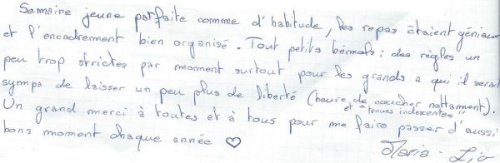 Semaine jeune parfaite comme d'habitude, les repas étaient géniaux
et l'encadrement bien organisé. Tout petits bémols : des règles un
peu trop strictes par moment surtout pour les grands a qui il serait
sympa de laisser un peu plus de liberté (heure de coucher nottament).
et "tenues indécentes"
Un grand merci à toutes et à tous pour me faire passer d'aussi
bons moment chaque année ♡
Maria-Lia